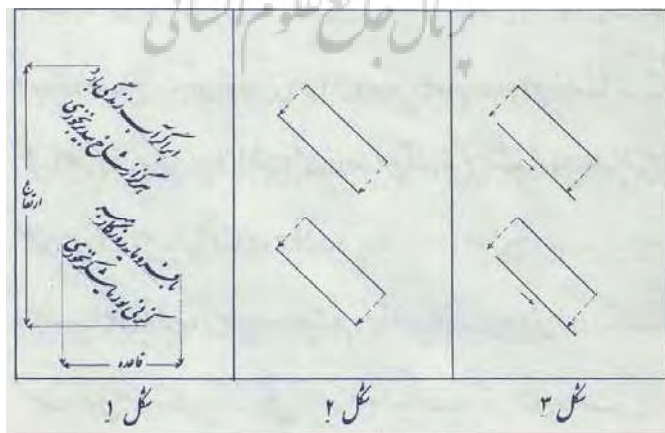 پرتال جامع علوم انسانی
ابر اگر آب زندگی بارد
هرگز از شاخ بید بر نخوری
با فرومایه روزگار مبر
کز نی بوریا شکر نخوری
ارتفاع
قاعده
شکل ۱
شکل ۲
شکل ۳